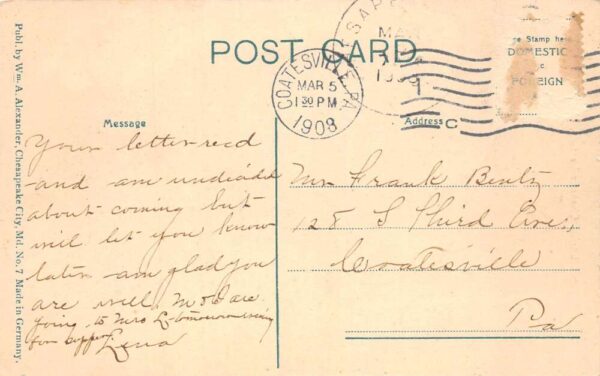 POST CARD
CHESAPE
MAR
COATESVILLE, PA.
MAR 5
1 30 PM
1908
e Stamp he
DOMESTIC
c
FOREIGN
Message
Address
C
Your letter recd
and am undicided
about coming but
will let you know
later am glad you
are well. M & I are
going to Mrs L- tomorrow evening
for supper.
Lena
Mr Frank Bentz
128 S Third Ave.,
Coatesville
Pa
Publ. by Wm. A. Alexander, Chesapeake City, Md. No. 7 Made in Germany.